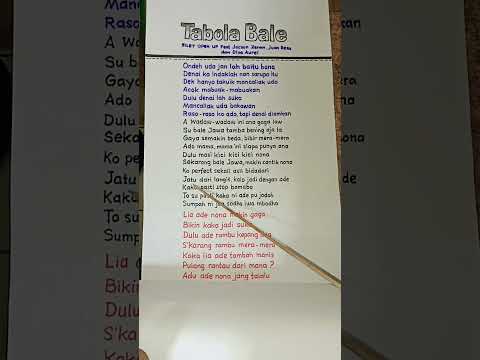 Tabola Bale
SILET OPEN UP feat Jacson Zeran, Juan Reza
dan Diva Aurel
Ondeh uda jan lah baitu bana
Denai ko indaklah nan sarupo itu
Dek hanyo takuik mancaliak uda
Acok mabuak-mabuakan
Dulu denai lah suko
Mancaliak uda bakawan
Raso-raso ko ado, tapi denai diamkan
A wadaw-wadaw ini ana gaga law
Su bale Jawa tamba bening aja le
Gaya semakin beda, bibir mera-mera
Ado mama, mama'ni siapa punya ana
Dulu masi kici kici kici nona
Sekarang bale Jawa, makin cantik nona
Ko perfect sekali asli bidadari
Jatu dari langit, kalo jadi dengan ade
Kaka pasti stop bamabo
To su pasti kaka ni ade pu jodoh
Sumpah ni jao sodho iwa mbodho
Lia ade nona makin gaga
Bikin kaka jadi suka
Dulu ade rambu kepang dua
S'karang rambu mera-mera
Kaka lia ade tambah manis
Pulang rantau dari mana?
Adu ade nona jang talalu